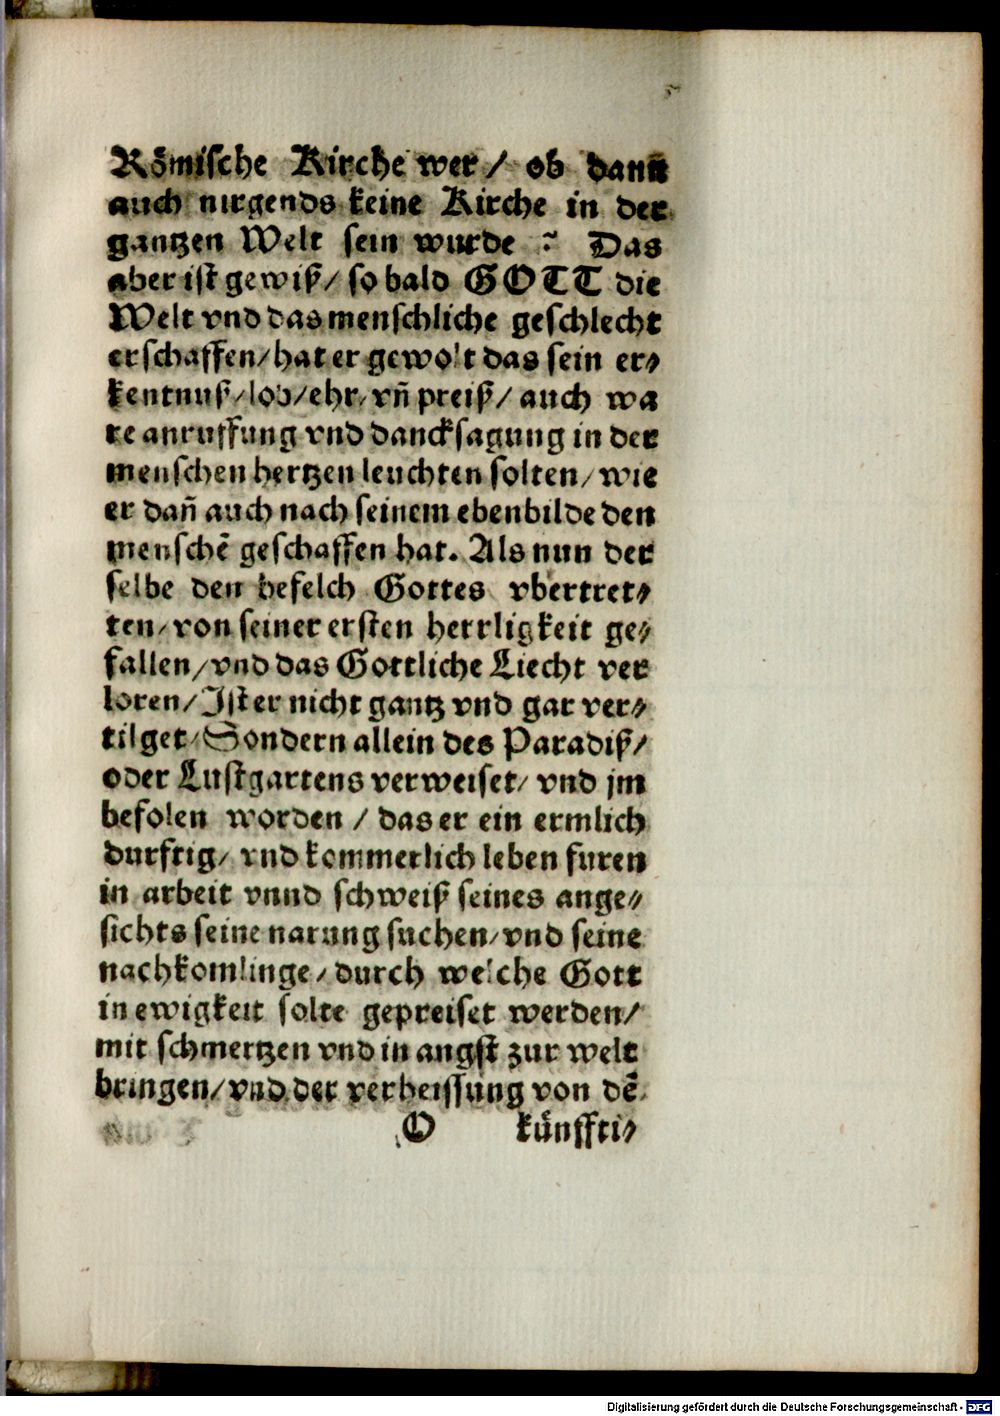 Römische Kirche wer / ob dann
auch nirgends keine Kirche in der
gantzen Welt sein wurde? Das
aber ist gewiß / so bald GOTT die
Welt vnd das menschliche geschlecht
erschaffen / hat er gewolt das sein er⸗
kentnuß / lob / ehr / vñ preiß / auch wa
re anruffung vnd dancksagung in der
menschen hertzen leuchten solten / wie
er dañ auch nach seinem ebenbilde den
menschē geschaffen hat. Als nun der
selbe den befelch Gottes vbertret⸗
ten / von seiner ersten herrligkeit ge⸗
fallen / vnd das Gottliche Liecht ver
loren / Ist er nicht gantz vnd gar ver⸗
tilget / Sondern allein des Paradiß /
oder Lustgartens verweiset / vnd jm
befolen worden / das er ein ermlich
durftig / vnd kommerlich leben furen
in arbeit vnnd schweiß seines ange⸗
sichts seine narung suchen / vnd seine
nachkomlinge / durch welche Gott
in ewigkeit solte gepreiset werden /
mit schmertzen vnd in angst zur welt
bringen / vnd der verheissung von dē
O künffti⸗
Digitalisierung gefördert durch die Deutsche Forschungsgemeinschaft - DFG